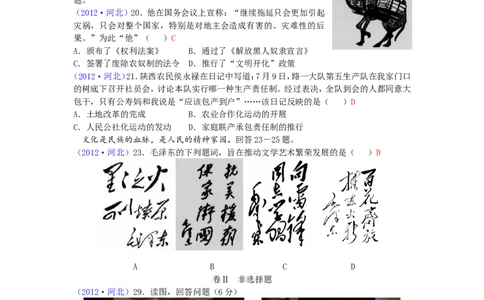 题。
（2012·河北）20．他在国务会议上宣称：“继续拖延只会更加引起
灾祸，只会对整个国家，特别是对地主会造成有害的、灾难性的后
果。”为此“他”（  ）C
A．颁布了《权利法案》  B．通过了《解放黑人奴隶宣言》
C．签署了废除农奴制的法令  D．推行了“文明开化”政策
（2012·河北）21.陕西农民侯永禄在日记中写道：7月9日，路一大队第五生产队在我家门口
的树底下召开社员会，讨论本队实行哪一种生产责任制。经过表决，全队到会的人都同意大
包干，只有公寿妈和我说是“应该包产到户”……该日记反映的是（  ）D
A．土地改革的完成  B．农业合作化运动的开展
C．人民公社化运动的发动  D．家庭联产承包责任制的推行
文化是民族的血脉，是人民的精神家园。回答23－25题。
（2012·河北）23．毛泽东的下列题词，旨在推动文学艺术繁荣发展的是（  ）D
星星之火
可以燎原
毛泽东
抗美援朝
保家卫国
向雷锋
同志学习
毛泽东
百花齐放
推陈出新
毛泽东
A B C D
卷Ⅱ 非选择题
（2012·河北）29．读图，回答问题（6分）